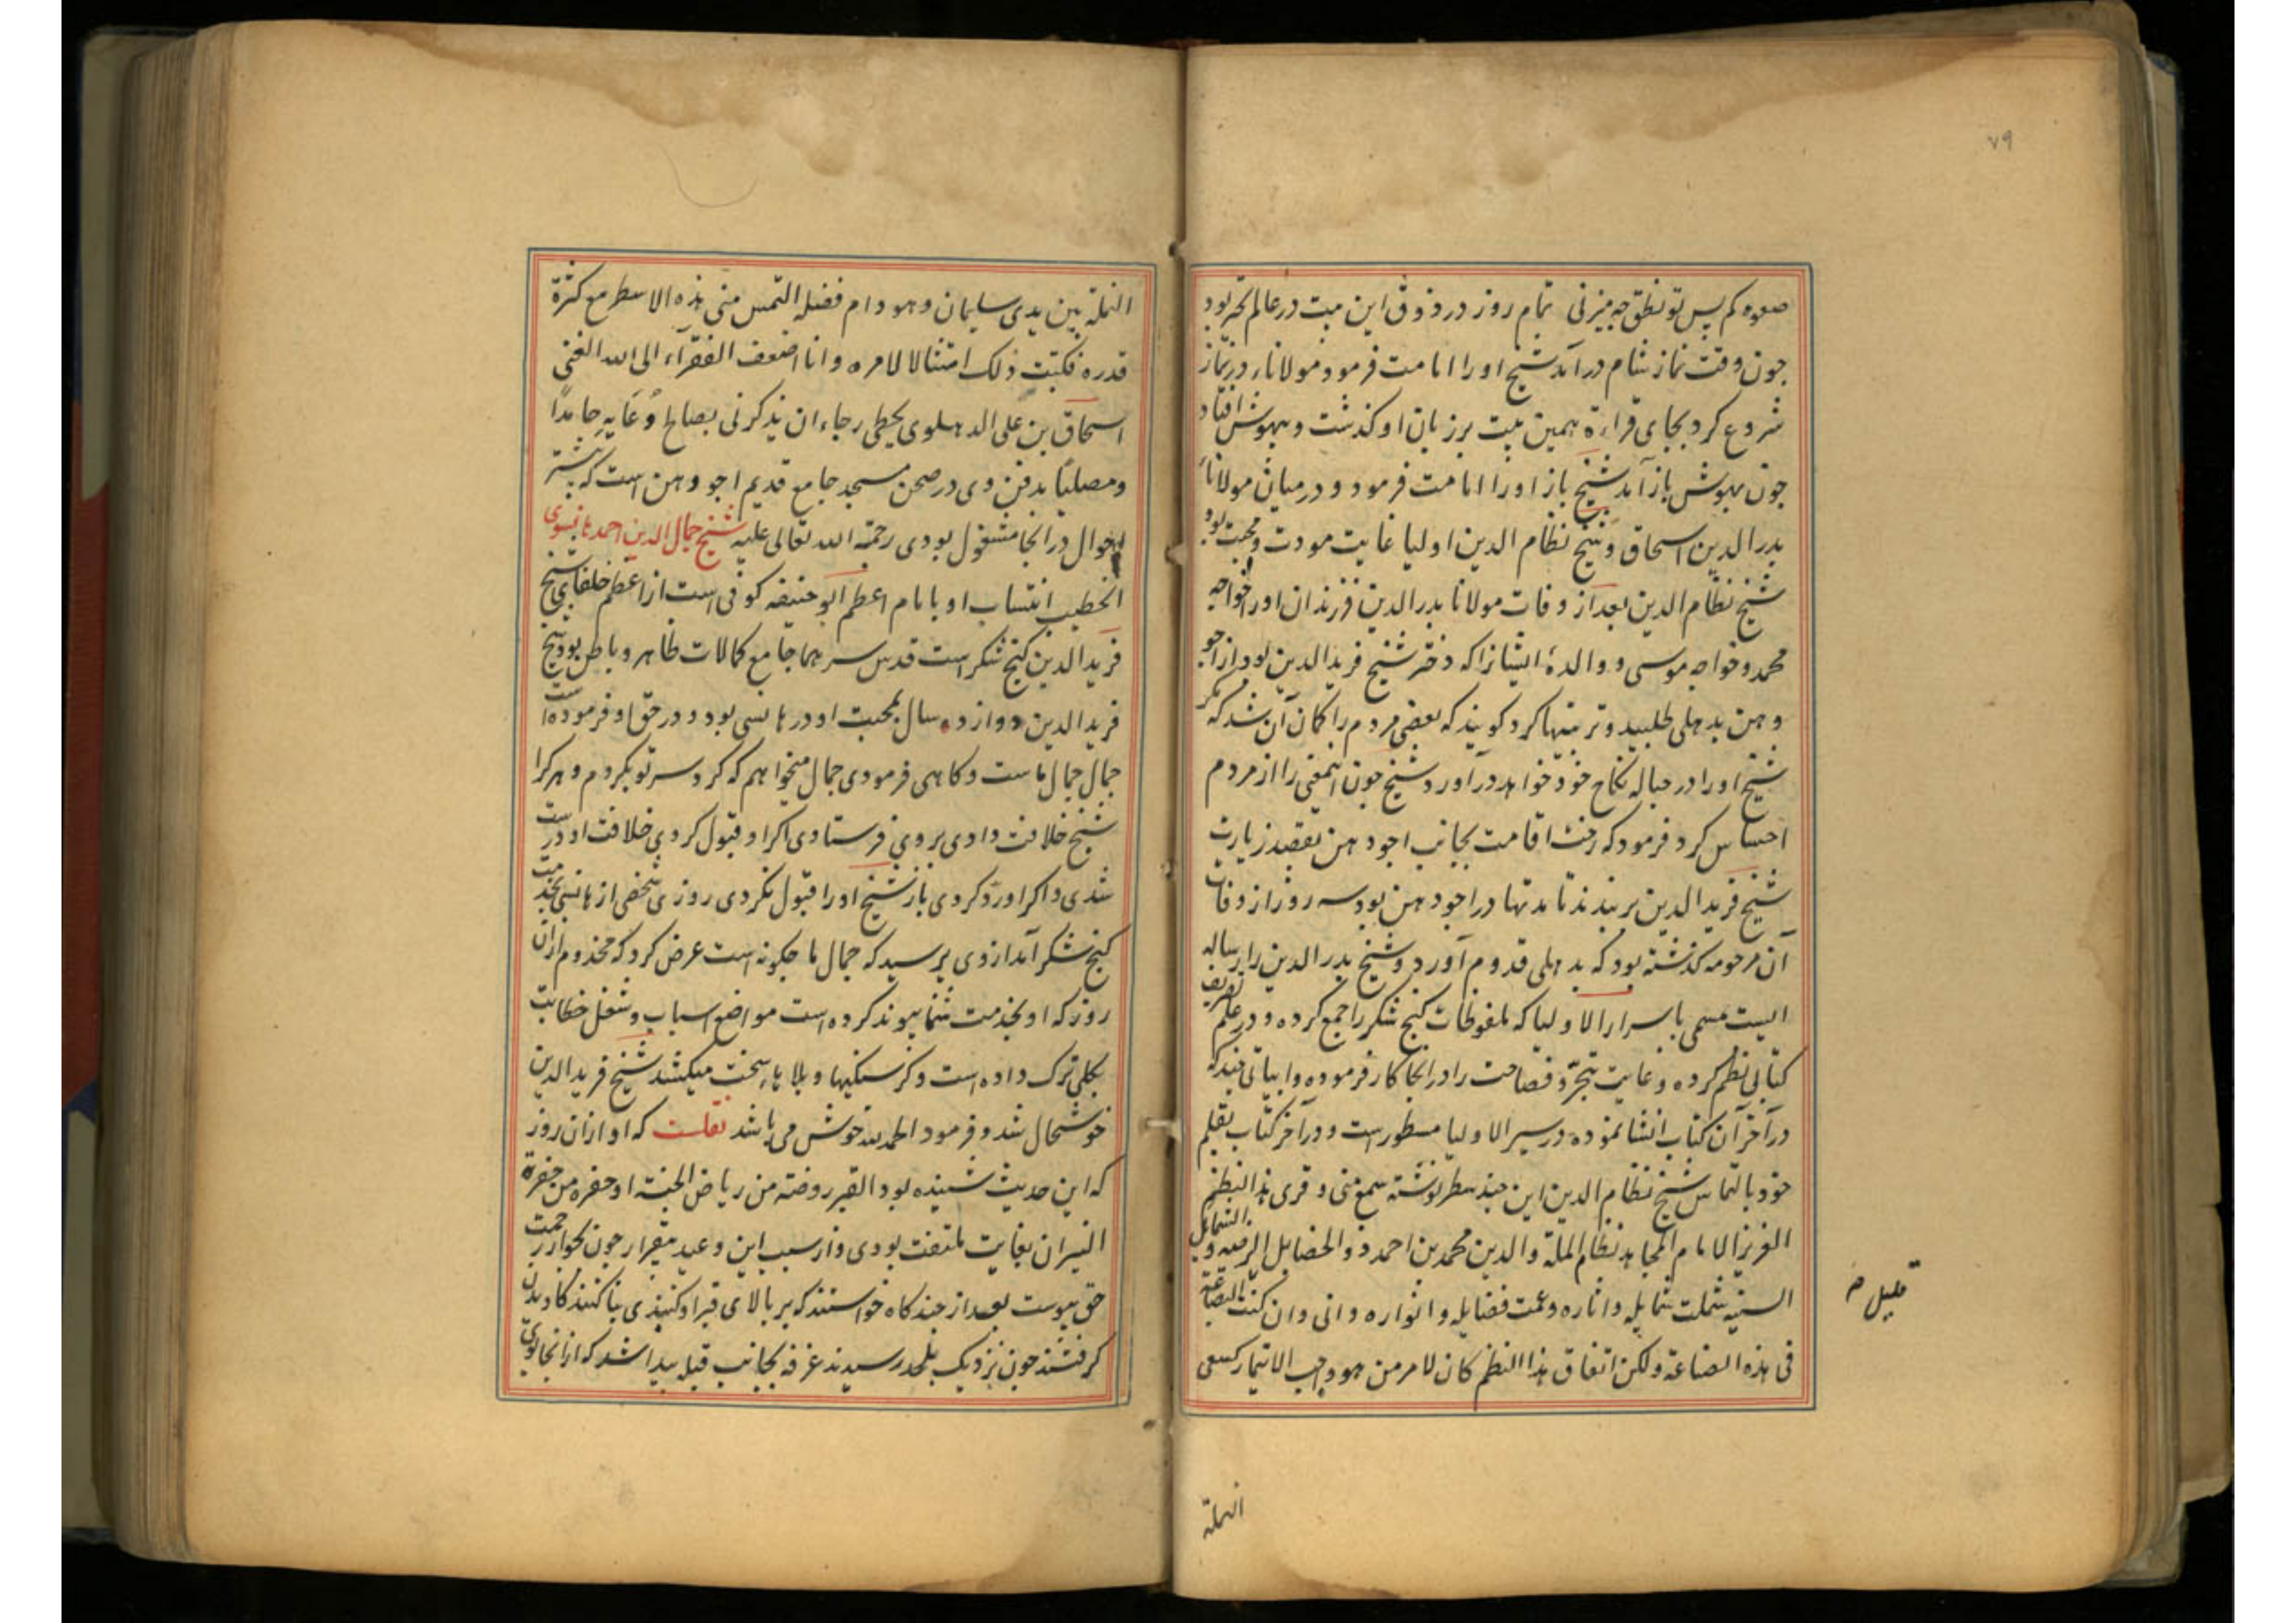 ۷۹
صعوه کم پس تو نطق چه میزنی تمام روز در ذوق این بیت در عالم تحیر بود
چون وقت نماز شام درآمد شیخ او را امامت فرمود مولانا در نماز
شروع کرد بجای قراءة همین بیت بر زبان او کذشت و بیهوش افتاد
چون بهوش باز آمد شیخ باز او را امامت فرمود و در میان مولانا
بدر الدین اسحاق و شیخ نظام الدین اولیا غایت مودت و محبت بود
شیخ نظام الدین بعد از وفات مولانا بدر الدین فرزندان او را خواجه
محمد و خواجه موسی و والدهٔ ایشانرا که دختر شیخ فرید الدین بود از اجو
دهن بدهلی طلبید و تربیتها کرد کویند که بعضی مردم را کمان آن شد که مکر
شیخ او را در حباله نکاح خود خواهد درآورد شیخ چون اینمعنی را از مردم
احساس کرد فرمود که رخت اقامت بجانب اجودهن بقصد زیارت
شیخ فرید الدین بر بندند تا مدتها در اجودهن بود سه روز از وفات
آن مرحومه کذشته بود که بدهلی قدوم آورد و شیخ بدر الدین را رساله
ایست مسمی باسرار الاولیا که ملفوظات کنج شکر را جمع کرده و در علم تصریف
کتابی نظم کرده و غایت تبحر و فصاحت را در انجا کار فرموده و ابیاتی چند که
در آخر آن کتاب انشا نموده در سیر الاولیا مسطور است و در آخر کتاب بقلم
خود بالتماس شیخ نظام الدین این چند سطر نوشته سمع منی و قری هذا النظم
العزیز الامام المجاهد نظام الملة والدین محمد بن احمد ذو الخصایل الرضیه و الشمایل
السنیه شملت شمایله و اثاره و عمت فضایله و انواره و انی و ان کنت البضاعة
قلیل
فی هذه الصناعة ولکن اتفاق هذا النظم کان لامر من هو واجب الایتمار کسعی
النملة
النملة بین یدی سلیمان و هو دام فضله التمس منی هذه الاسطر مع کثرة
قدره فکتبت ذلک امتثالا لامره و انا اضعف الفقرآء الی الله الغنی
اسحاق بن علی الدهلوی بخطی رجاء ان یذکرنی بصالح دُعَایه حامدًا
و مصلیًا مدفن وی در صحن مسجد جامع قدیم اجودهن است که بیشتر
احوال در انجا مشغول بودی رحمة الله تعالی علیه شیخ جمال الدین احمد هانسوی
الخطیب انتساب او بامام اعظم ابو حنیفه کوفی است از اعظم خلفای شیخ
فرید الدین کنج شکر است قدس سرهما جامع کمالات ظاهر و باطن بود شیخ
فرید الدین دوازده سال بمحبت او در هانسی بود و در حق او فرموده است
جمال جمال ماست و کاهی فرمودی جمال میخواهم که کرد سر تو بکردم و هر کرا
شیخ خلافت دادی بر وی فرستادی اکر او قبول کردی خلافت او درست
شدی و اکر او رد کردی باز شیخ او را قبول نکردی روزی شخصی از هانسی بخدمت
کنج شکر آمد از وی پرسید که جمال ما چکونه است عرض کرد که مخدوم از ان
روز که او بخدمت شما پیوند کرده است مواضع و اسباب و شغل خطابت
بکلی ترک داده است و کرسنکیها و بلایا سخت میکشد شیخ فرید الدین
خوشحال شد و فرمود الحمد لله خوش می باشد نقلست که او از ان روز
که این حدیث شنیده بود القبر روضة من ریاض الجنة او حفره من حفرة
النیران بغایت ملتفت بودی و از سبب این وعید بیقرار چون بجوار رحمت
حق پیوست بعد از چند کاه خواستند که بر بالای قبر او کنبذی بنا کنند کاویدن
کرفتند چون نزدیک بلحد رسیدند غرفه بجانب قبله پیدا شد که از انجا بوی